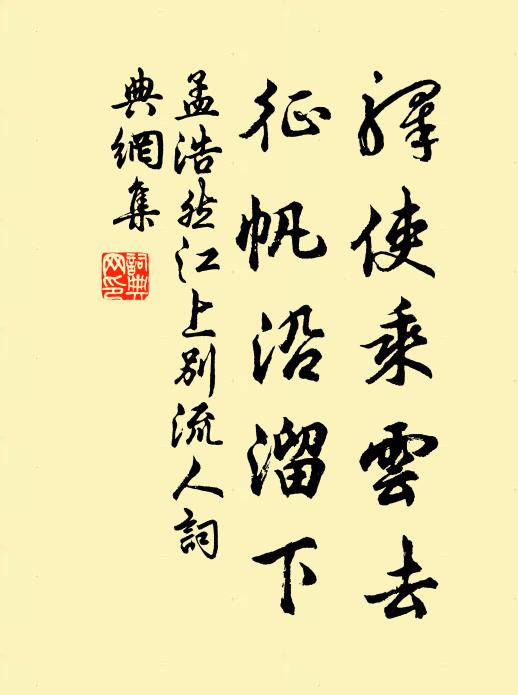 驛使乘雲去
征帆沿溜下
孟浩然江上別流人詞
典網集
詞典网印